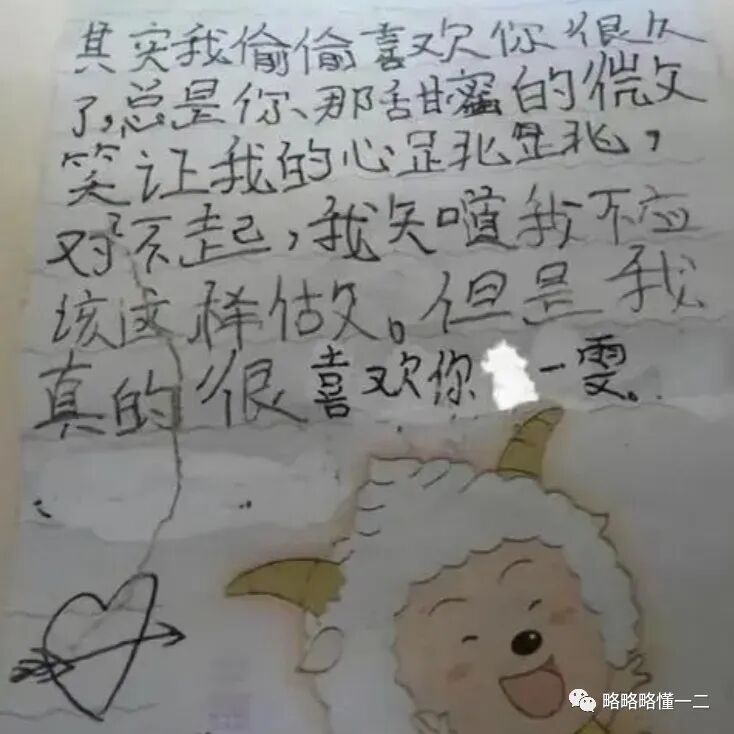 其实我偷偷喜欢你很久
了,总是你、那甜蜜的微文
笑让我的心足兆足兆,
对不起,我矢噵我不应
该这样估文。但是我
真的很喜欢你 一雯。
略略略懂一二